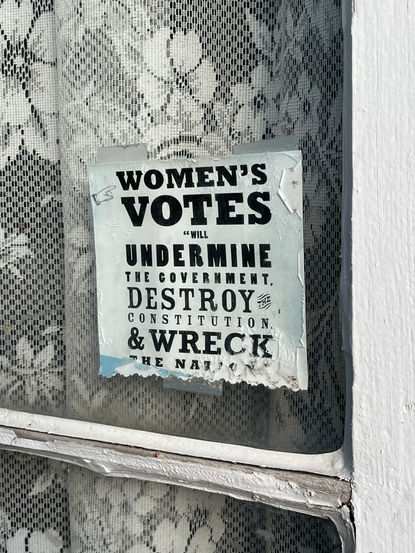 WOMEN'S
VOTES
“WILL
UNDERMINE
THE GOVERNMENT,
DESTROY THE
CONSTITUTION,
& WRECK
THE